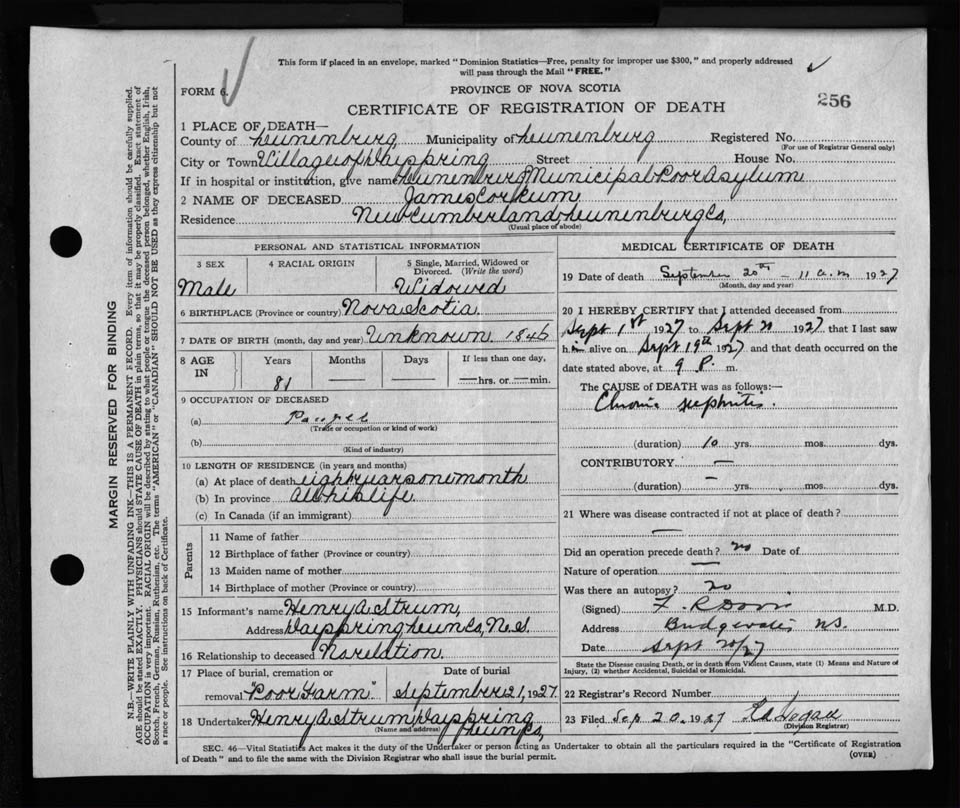 This form if placed in an envelope, marked "Dominion Statistics—Free, penalty for improper use $300," and properly addressed
will pass through the Mail "FREE."
FORM 6.
PROVINCE OF NOVA SCOTIA
CERTIFICATE OF REGISTRATION OF DEATH
256
1 PLACE OF DEATH—
County of Lunenburg, Municipality of Lunenburg Registered No.
(For use of Registrar General only)
City or Town Village of Dayspring Street House No.
If in hospital or institution, give name Lunenburg Municipal Poor Asylum
2 NAME OF DECEASED James Corkum
Residence New Cumberland, Lunenburg Co,
(Usual place of abode)
PERSONAL AND STATISTICAL INFORMATION
3 SEX 4 RACIAL ORIGIN 5 Single, Married, Widowed or
Divorced. (Write the word)
Male Widowed
6 BIRTHPLACE (Province or country) Nova Scotia.
7 DATE OF BIRTH (month, day and year) Unknown 1846
8 AGE IN Years Months Days If less than one day,
81 — — —hrs. or —min.
9 OCCUPATION OF DECEASED
(a) Pauper
(Trade or occupation or kind of work)
(b)
(Kind of industry)
10 LENGTH OF RESIDENCE (in years and months)
(a) At place of death eight years one month
(b) In province all his life.
(c) In Canada (if an immigrant)
Parents
11 Name of father
12 Birthplace of father (Province or country)
13 Maiden name of mother
14 Birthplace of mother (Province or country)
15 Informant's name Henry A Strum,
Address Dayspring Lun Co, N.S.
16 Relationship to deceased No relation.
17 Place of burial, cremation or Date of burial
removal "Poor Farm" September 21, 1927
18 Undertaker Henry A Strum Dayspring
(Name and address) Lun Co,
MEDICAL CERTIFICATE OF DEATH
19 Date of death September 20th — 11 a.m 1927
(Month, day and year)
20 I HEREBY CERTIFY that I attended deceased from
Sept 1st 1927 to Sept 20 1927 that I last saw
him alive on Sept 19th 1927 and that death occurred on the
date stated above, at 9 P. m.
The CAUSE OF DEATH was as follows:—
Chronic nephritis.
(duration) 10 yrs. mos. dys.
CONTRIBUTORY —
(duration) — yrs. mos. dys.
21 Where was disease contracted if not at place of death?
—
Did an operation precede death? no Date of
Nature of operation —
Was there an autopsy? no
(Signed) M.D.
Address Bridgewater N.S.
Date Sept 20/27
State the Disease causing Death, or in death from Violent Causes, state (1) Means and Nature of
Injury, (2) whether Accidental, Suicidal or Homicidal.
22 Registrar's Record Number
23 Filed Sep 20. 1927
(Division Registrar)
SEC. 46—Vital Statistics Act makes it the duty of the Undertaker or person acting as Undertaker to obtain all the particulars required in the "Certificate of Registration
of Death" and to file the same with the Division Registrar who shall issue the burial permit. (OVER)
MARGIN RESERVED FOR BINDING
N.B.—WRITE PLAINLY WITH UNFADING INK—THIS IS A PERMANENT RECORD. Every item of information should be carefully supplied.
AGE should be stated EXACTLY. PHYSICIANS should STATE CAUSE OF DEATH in plain terms, so that it may be properly classified. Exact statement of
OCCUPATION is very important. RACIAL ORIGIN will be described by stating to what people or tongue the deceased person belonged, whether English, Irish,
Scotch, French, German, Russian, Ruthenian, etc. The terms "AMERICAN" or "CANADIAN" SHOULD NOT BE USED as they express citizenship but not
a race or people. See instructions on back of Certificate.